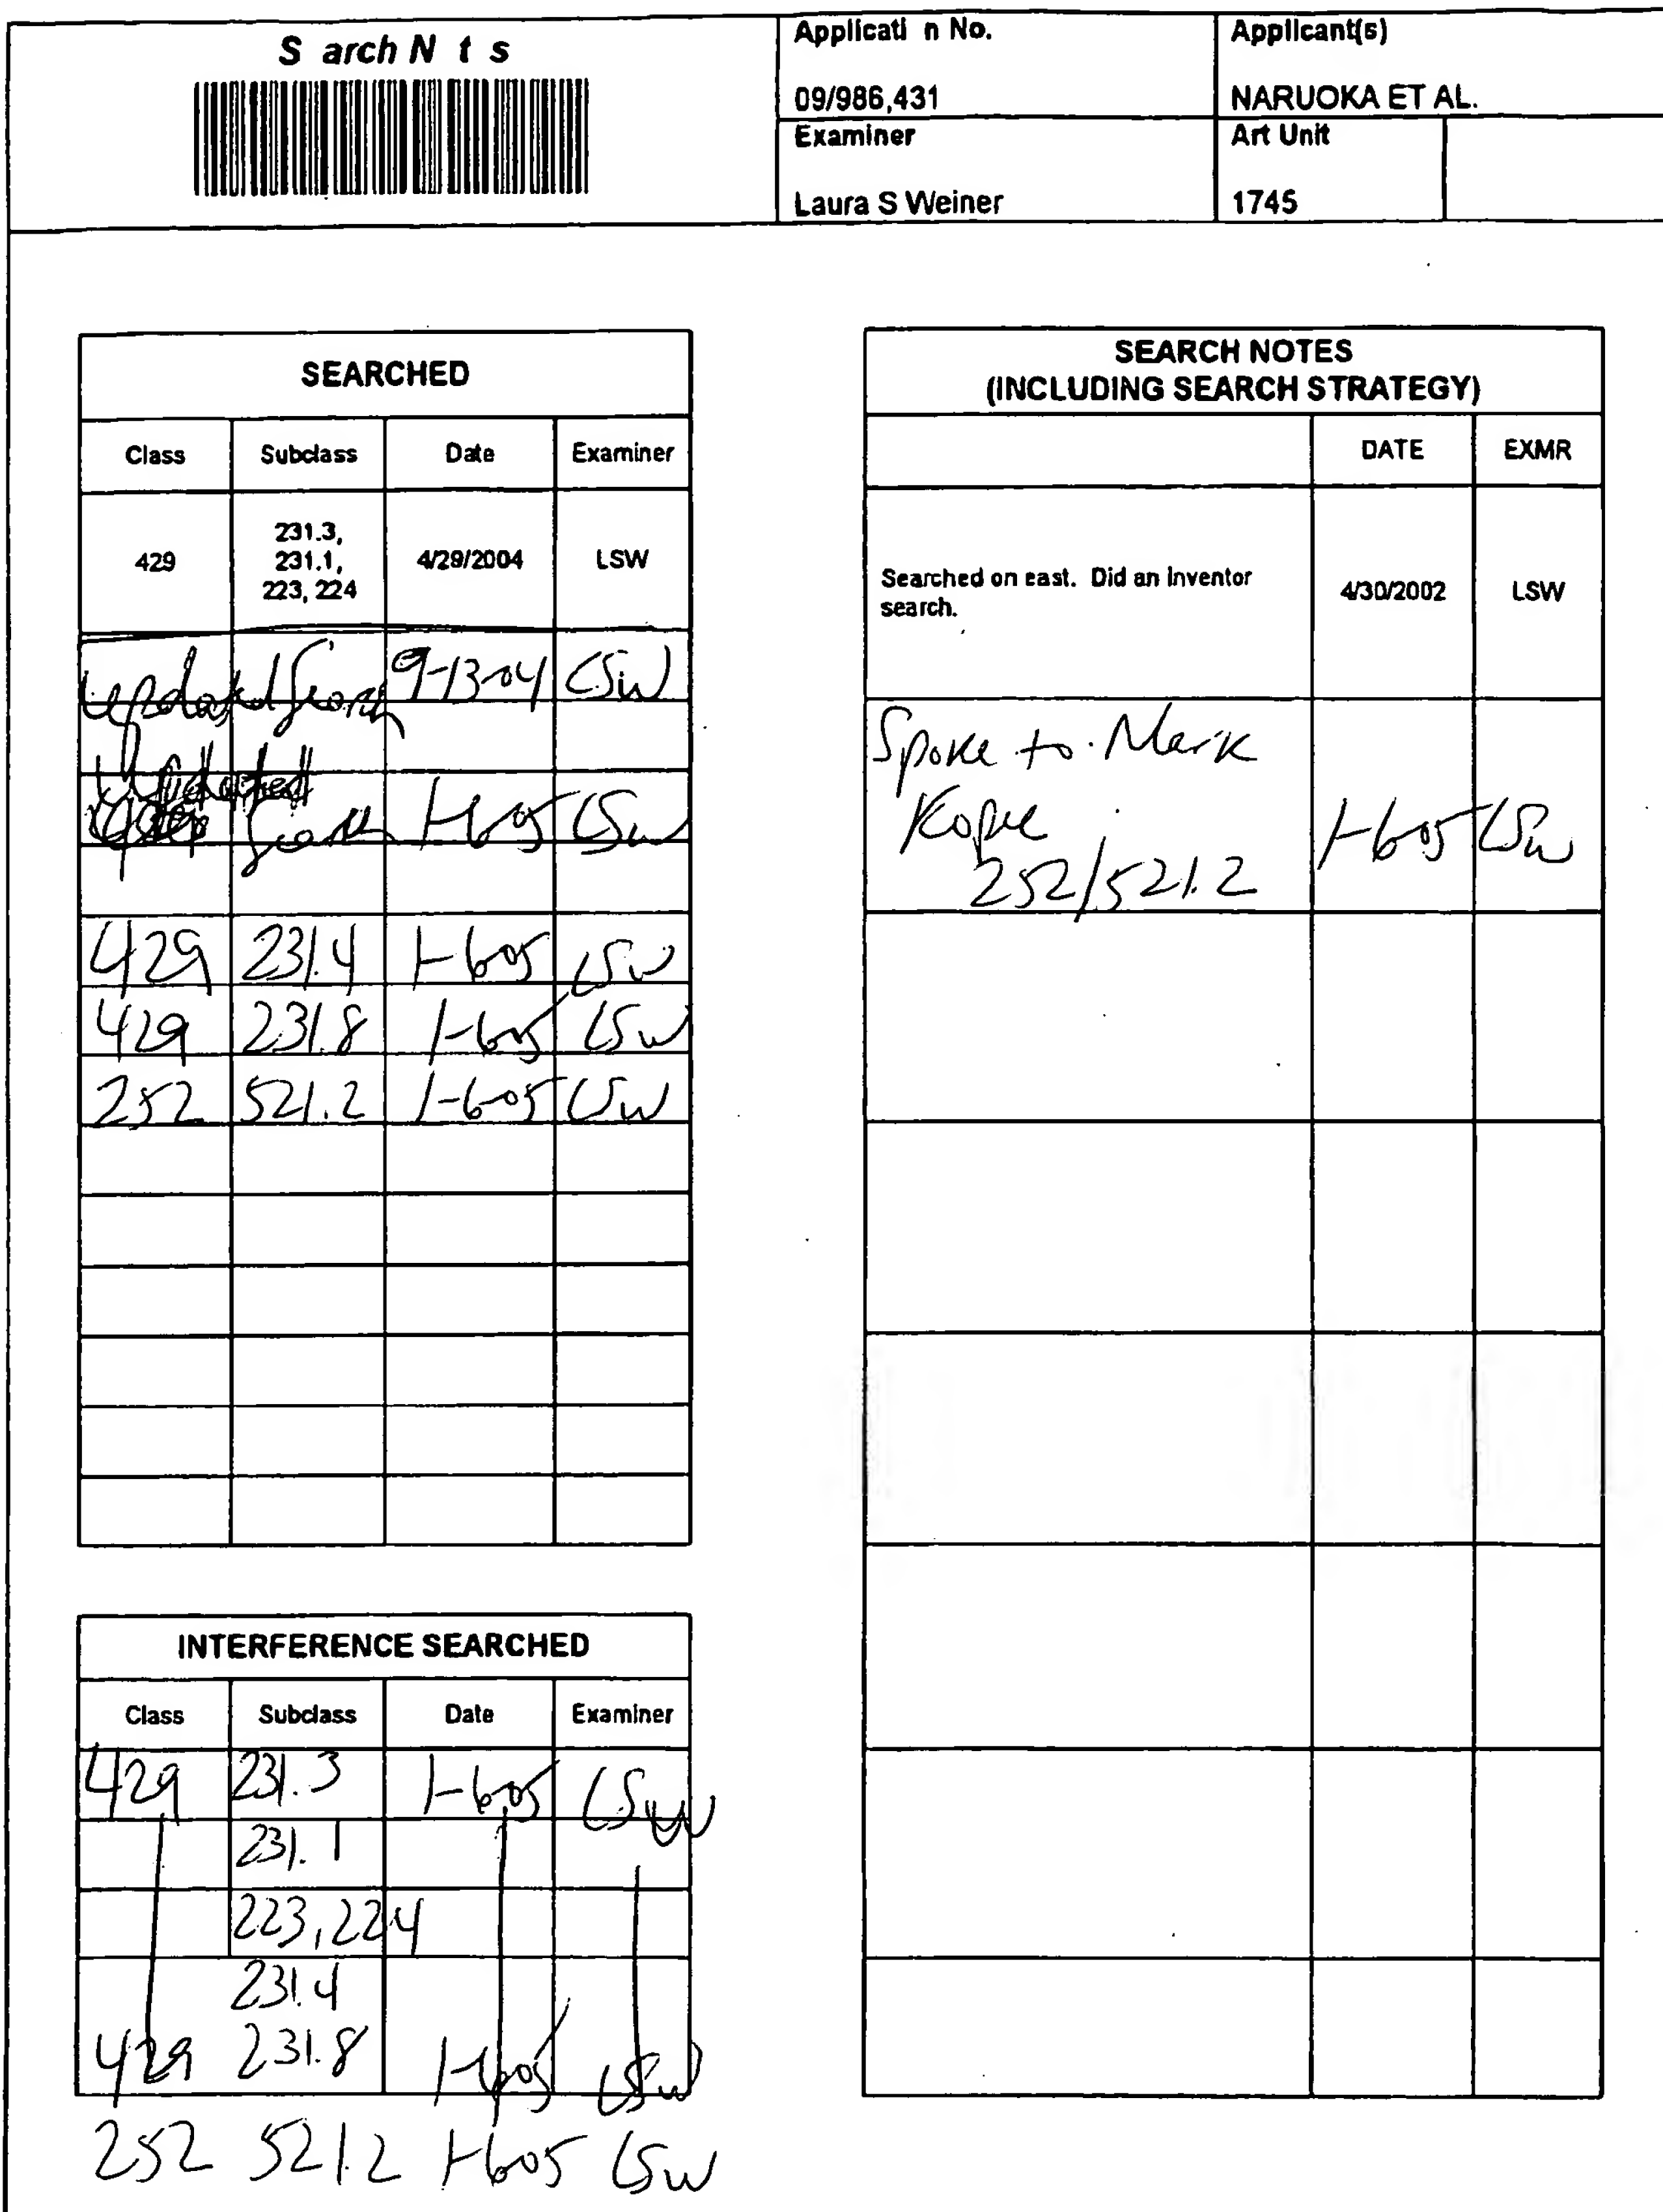 S arch N t s
Applicati n No.
09/986,431
Applicant(s)
NARUOKA ET AL.
Examiner
Laura S Weiner
Art Unit
1745
SEARCHED
Class Subclass Date Examiner
429 231.3, 231.1, 223, 224 4/29/2004 LSW
Updated Search 9-13-04 LSW
Updated
Search 1-6-05 LSW
429 231.4 1-6-05 LSW
429 231.8 1-6-05 LSW
252 521.2 1-6-05 LSW
INTERFERENCE SEARCHED
Class Subclass Date Examiner
429 231.3 1-6-05 LSW
231.1
223, 224
231.4
429 231.8 1-6-05 LSW
252 521.2 1-6-05 LSW
SEARCH NOTES
(INCLUDING SEARCH STRATEGY)
DATE EXMR
Searched on east. Did an inventor
search. 4/30/2002 LSW
Spoke to Mark
Kopec 1-6-05 LSW
252/521.2